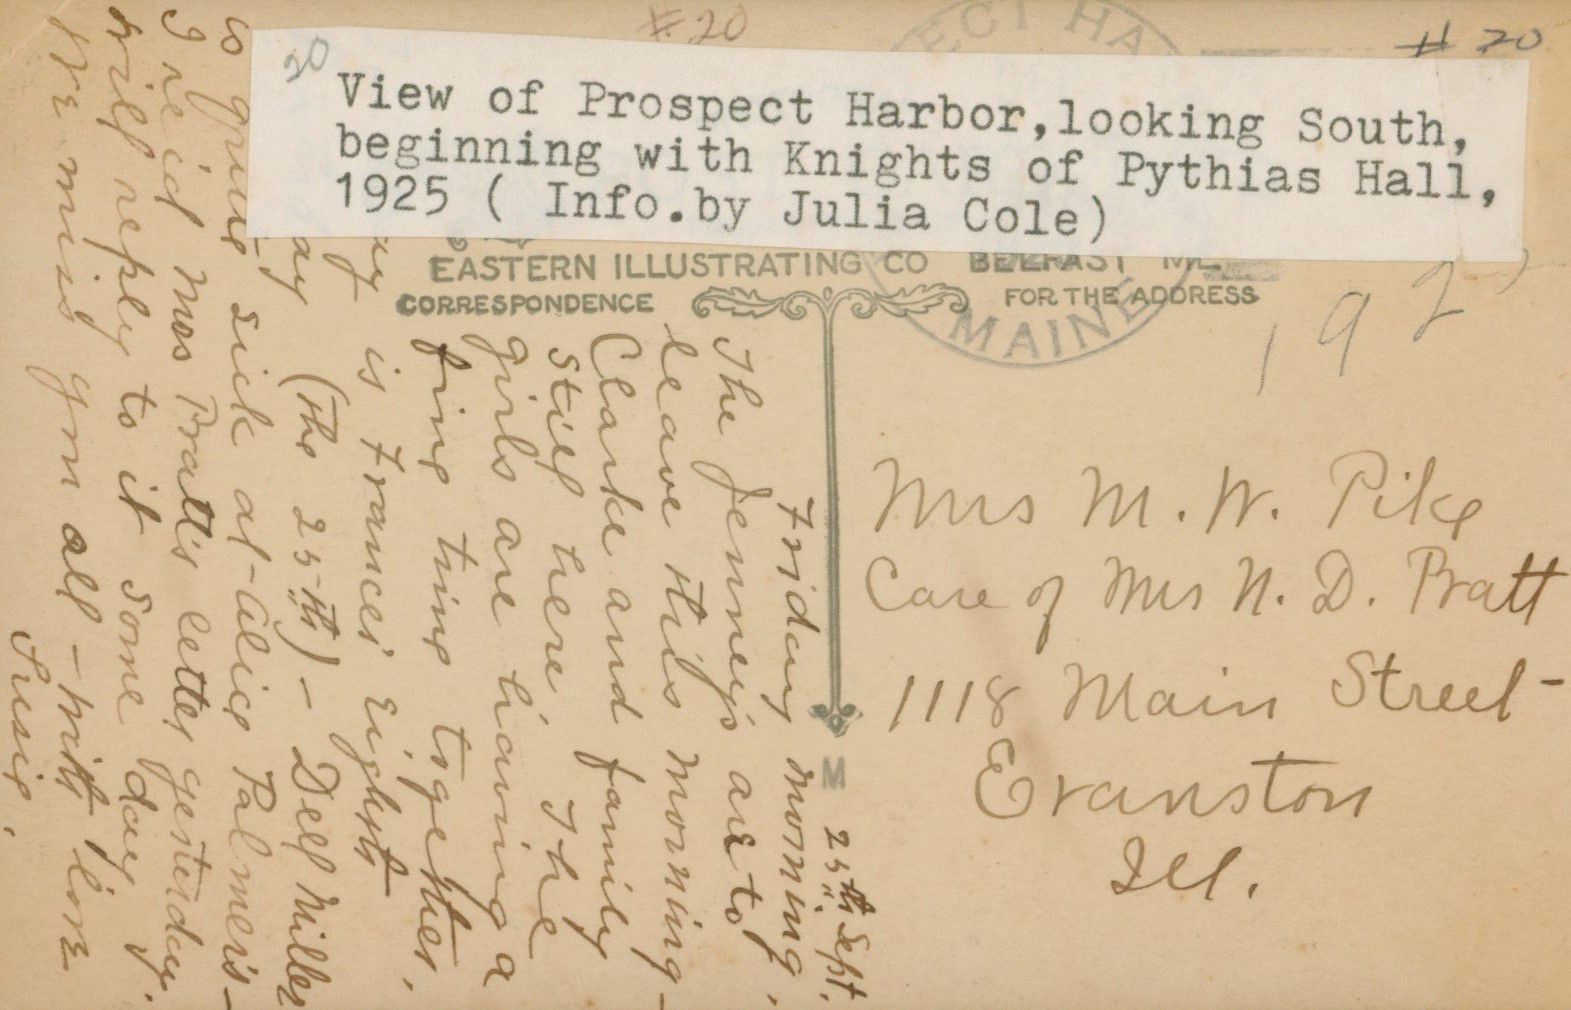 # 20
# 20
20
View of Prospect Harbor,looking South,
beginning with Knights of Pythias Hall,
1925 ( Info.by Julia Cole)
ECT HA
MAINE
EASTERN ILLUSTRATING CO BELFAST ME.
CORRESPONDENCE
FOR THE ADDRESS
192
M
25th Sept.
Friday morning,
The Jenneys are to
leave this morning -
Clarke and family
still here. The
girls are having a
fine time together,
is Frances' eight
ay (the 25th) - Dell Miller
is quite sick at Alice Palmer's -
I rec'd Mrs Pratt's letter yesterday.
Will reply to it some day.
We miss you all - with love
Susie.
Mrs M. W. Pike
Care of Mrs N. D. Pratt
1118 Main Street -
Evanston
Ill.